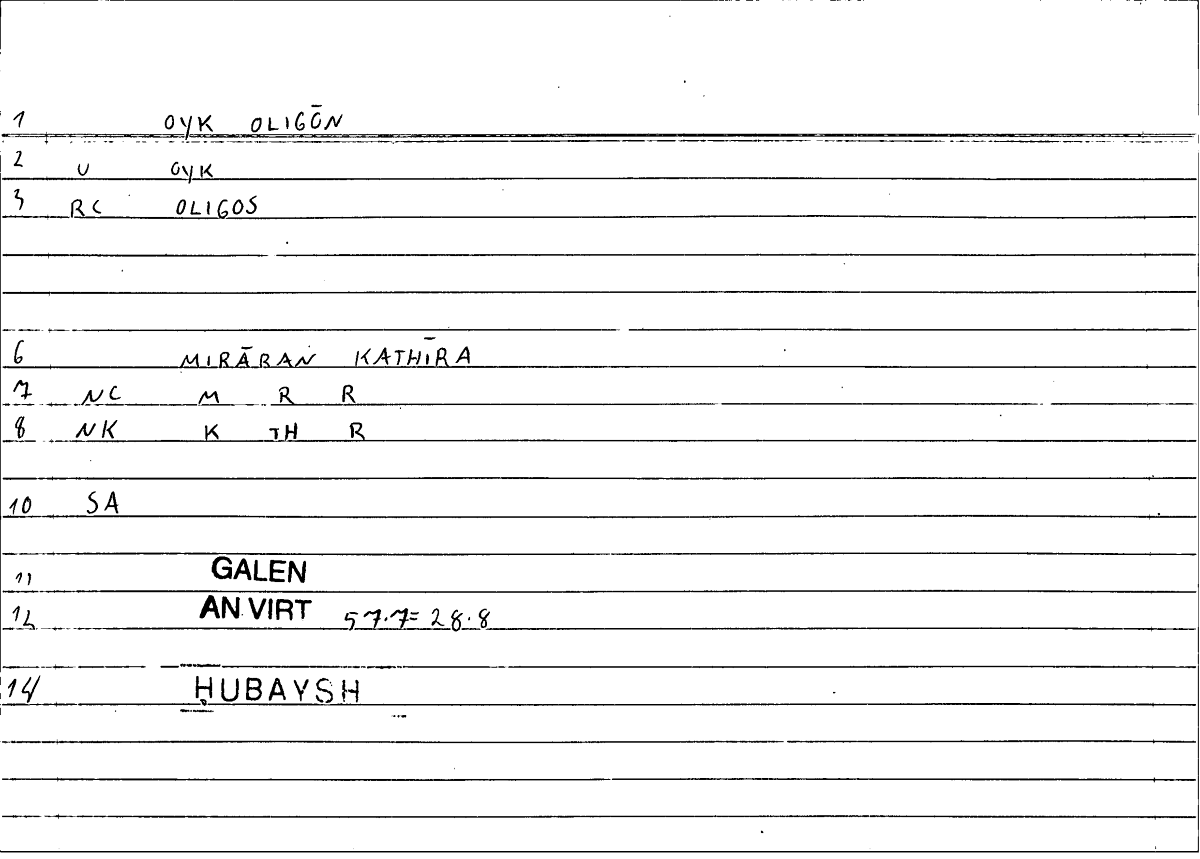 1 OYK OLIGŌN
2 U OYK
3 RC OLIGOS
6 MIRĀRAN KATHĪRA
7 NC M R R
8 NK K TH R
10 SA
11 GALEN
12 AN VIRT 57.7=28.8
14 ḤUBAYSH